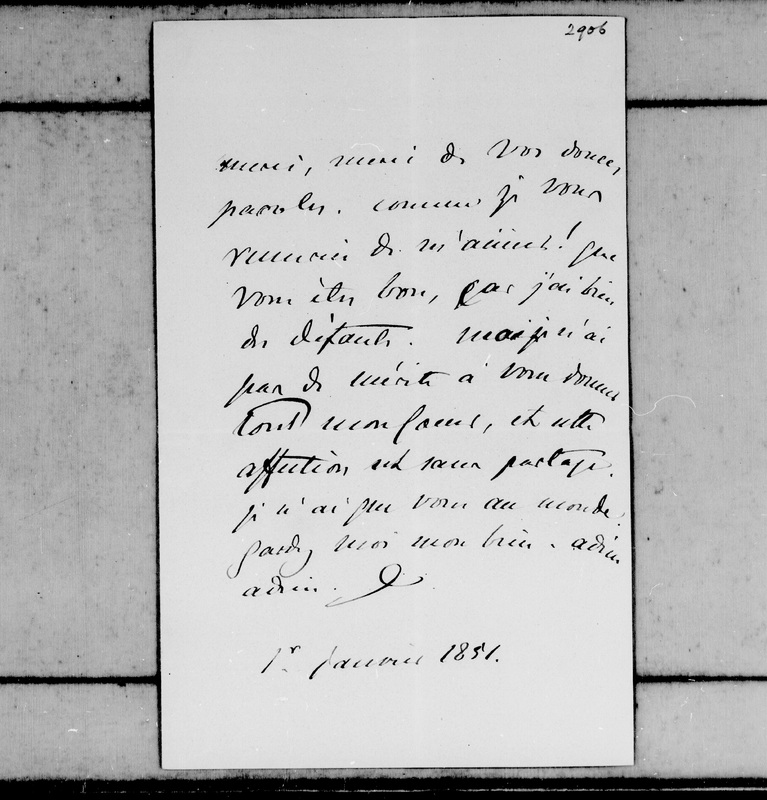 2906
merci, merci de vos douces
paroles. comme je vous
remercie de m'aimer! que
vous êtes bon, car j'ai bien
des défauts. mais je n'ai
pas de mérite à vous donner
tout mon coeur, et cette
affection est sans partage.
je n'ai que vous au monde.
gardez moi mon bien. adieu
adieu.
1er janvier 1851.